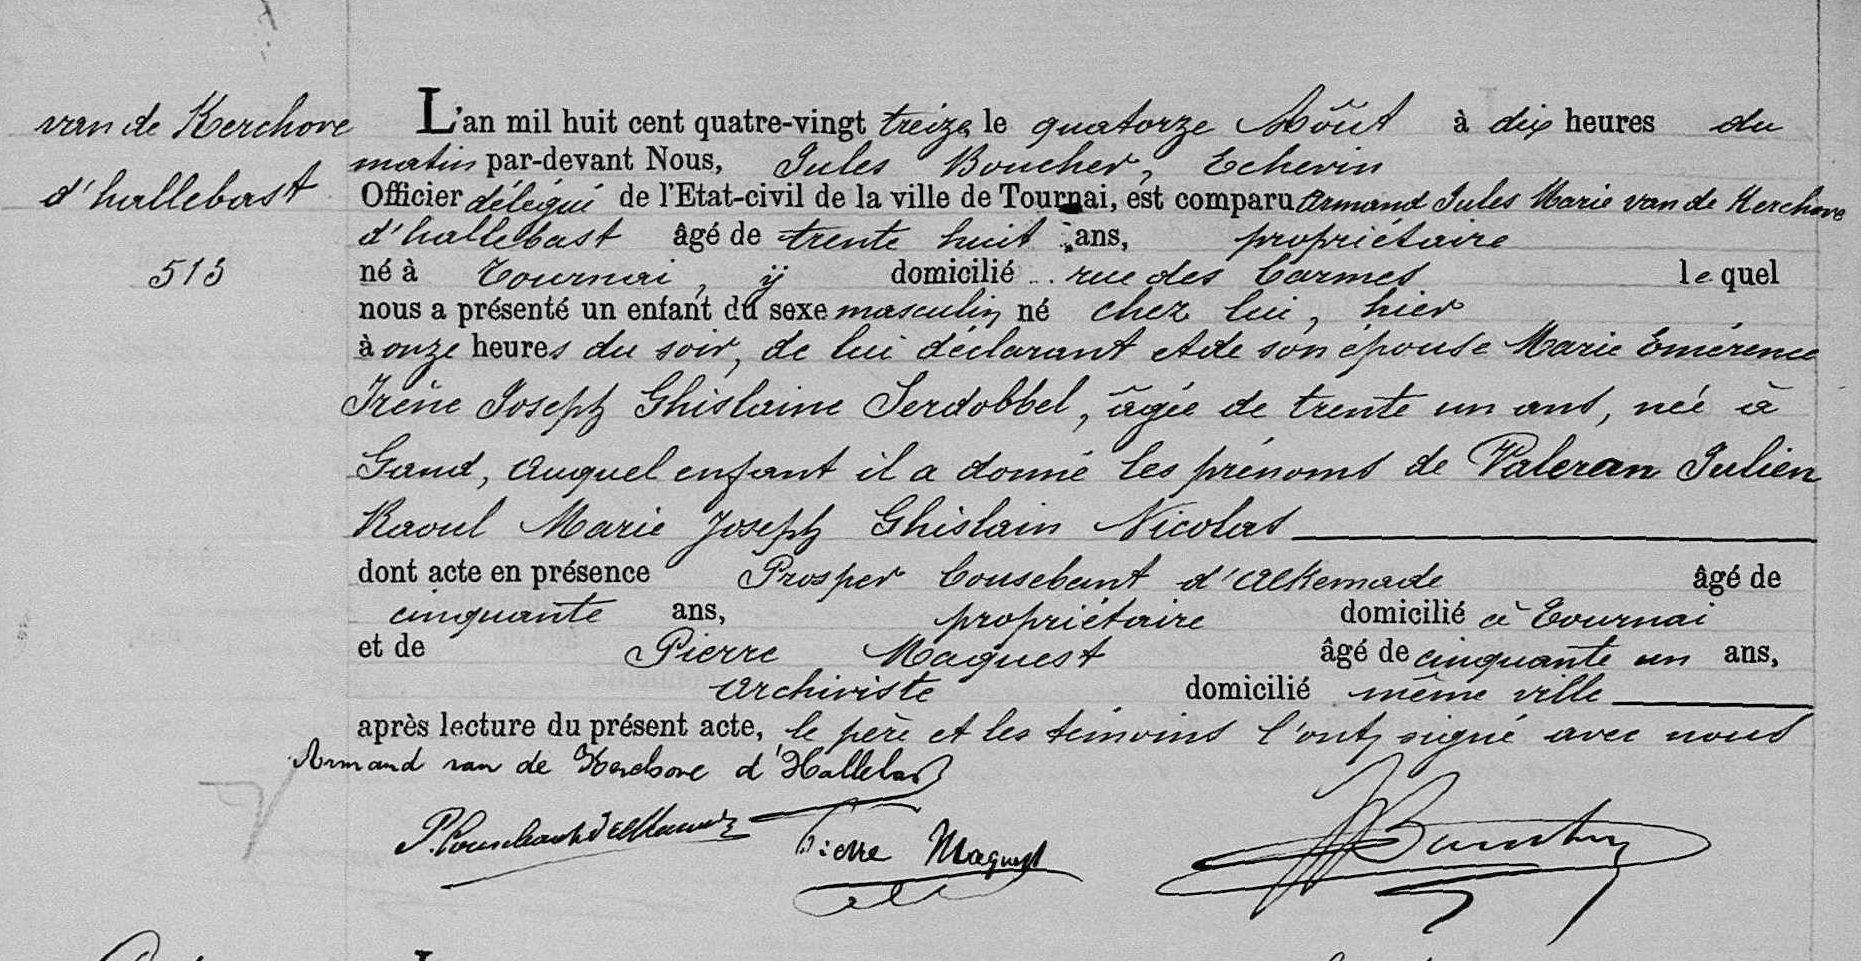 van de Kerchove
d'hallebast
513
L'an mil huit cent quatre-vingt treize le quatorze Août à dix heures du
matin par-devant Nous, Jules Boucher, Echevin
Officier délégué de l'Etat-civil de la ville de Tournai, est comparu Armand Jules Marie van de Kerchove
d'hallebast âgé de trente huit ans, propriétaire
né à Tournai, ÿ domicilié rue des Carmes lequel
nous a présenté un enfant du sexe masculin né chez lui, hier
à onze heures du soir, de lui déclarant et de son épouse Marie Emérence
Irène Joseph Ghislaine Serdobbel, âgée de trente un ans, née à
Gand, auquel enfant il a donné les prénoms de Valeran Julien
Raoul Marie Joseph Ghislain Nicolas
dont acte en présence Prosper Cousebant d'Alkemade âgé de
cinquante ans, propriétaire domicilié à Tournai
et de Pierre Maquest âgé de cinquante un ans,
Archiviste domicilié même ville
après lecture du présent acte, le père et les témoins l'ont signé avec nous
Armand van de Kerchove d'Hallebast
P. Cousebant d'Alkemade
Pierre Maquest